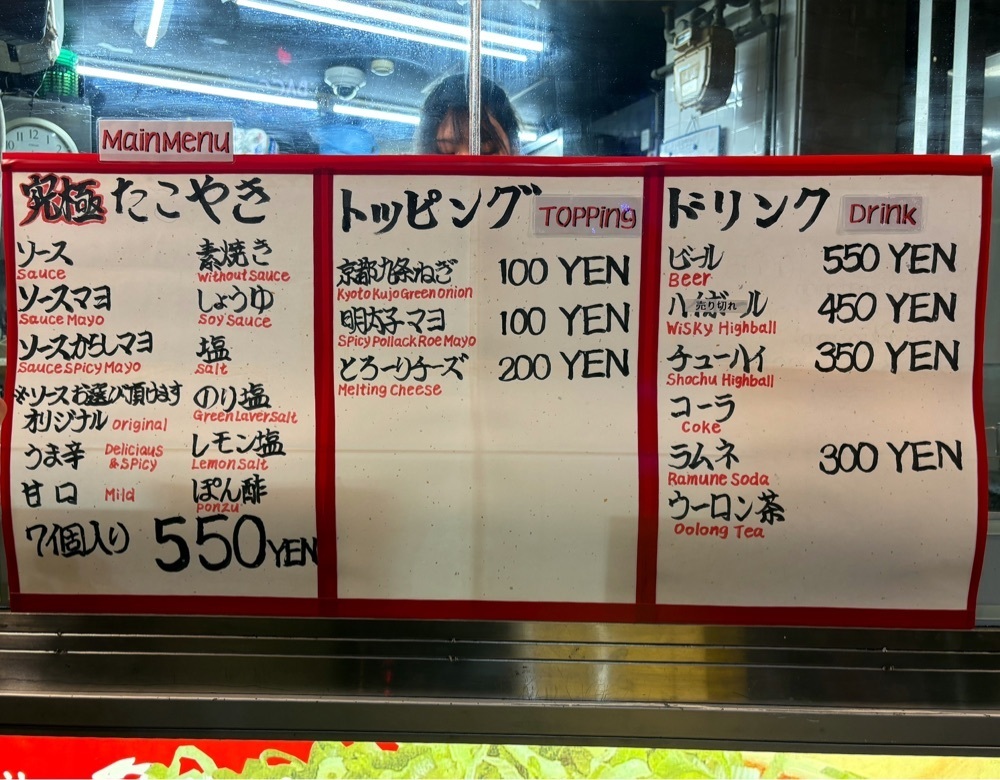 MainMenu
究極たこやき
ソース
Sauce
ソースマヨ
Sauce Mayo
ソースからしマヨ
Sauce SPicy Mayo
※ソースお選び頂けます
オリジナル original
うま辛 Delicious & SPicy
甘口 Mild
素焼き
without sauce
しょうゆ
Soy Sauce
塩
Salt
のり塩
Green Laver Salt
レモン塩
Lemon Salt
ぽん酢
Ponzu
7個入り 550YEN
トッピング TOPPing
京都九条ねぎ 100 YEN
Kyoto Kujo Green Onion
明太子マヨ 100 YEN
SPicy Pollack Roe Mayo
とろーりチーズ 200 YEN
Melting Cheese
ドリンク Drink
ビール 550 YEN
Beer
ハイボール 450 YEN
売り切れ
WiSKy Highball
チューハイ 350 YEN
Shochu Highball
コーラ
Coke
ラムネ 300 YEN
Ramune Soda
ウーロン茶
Oolong Tea